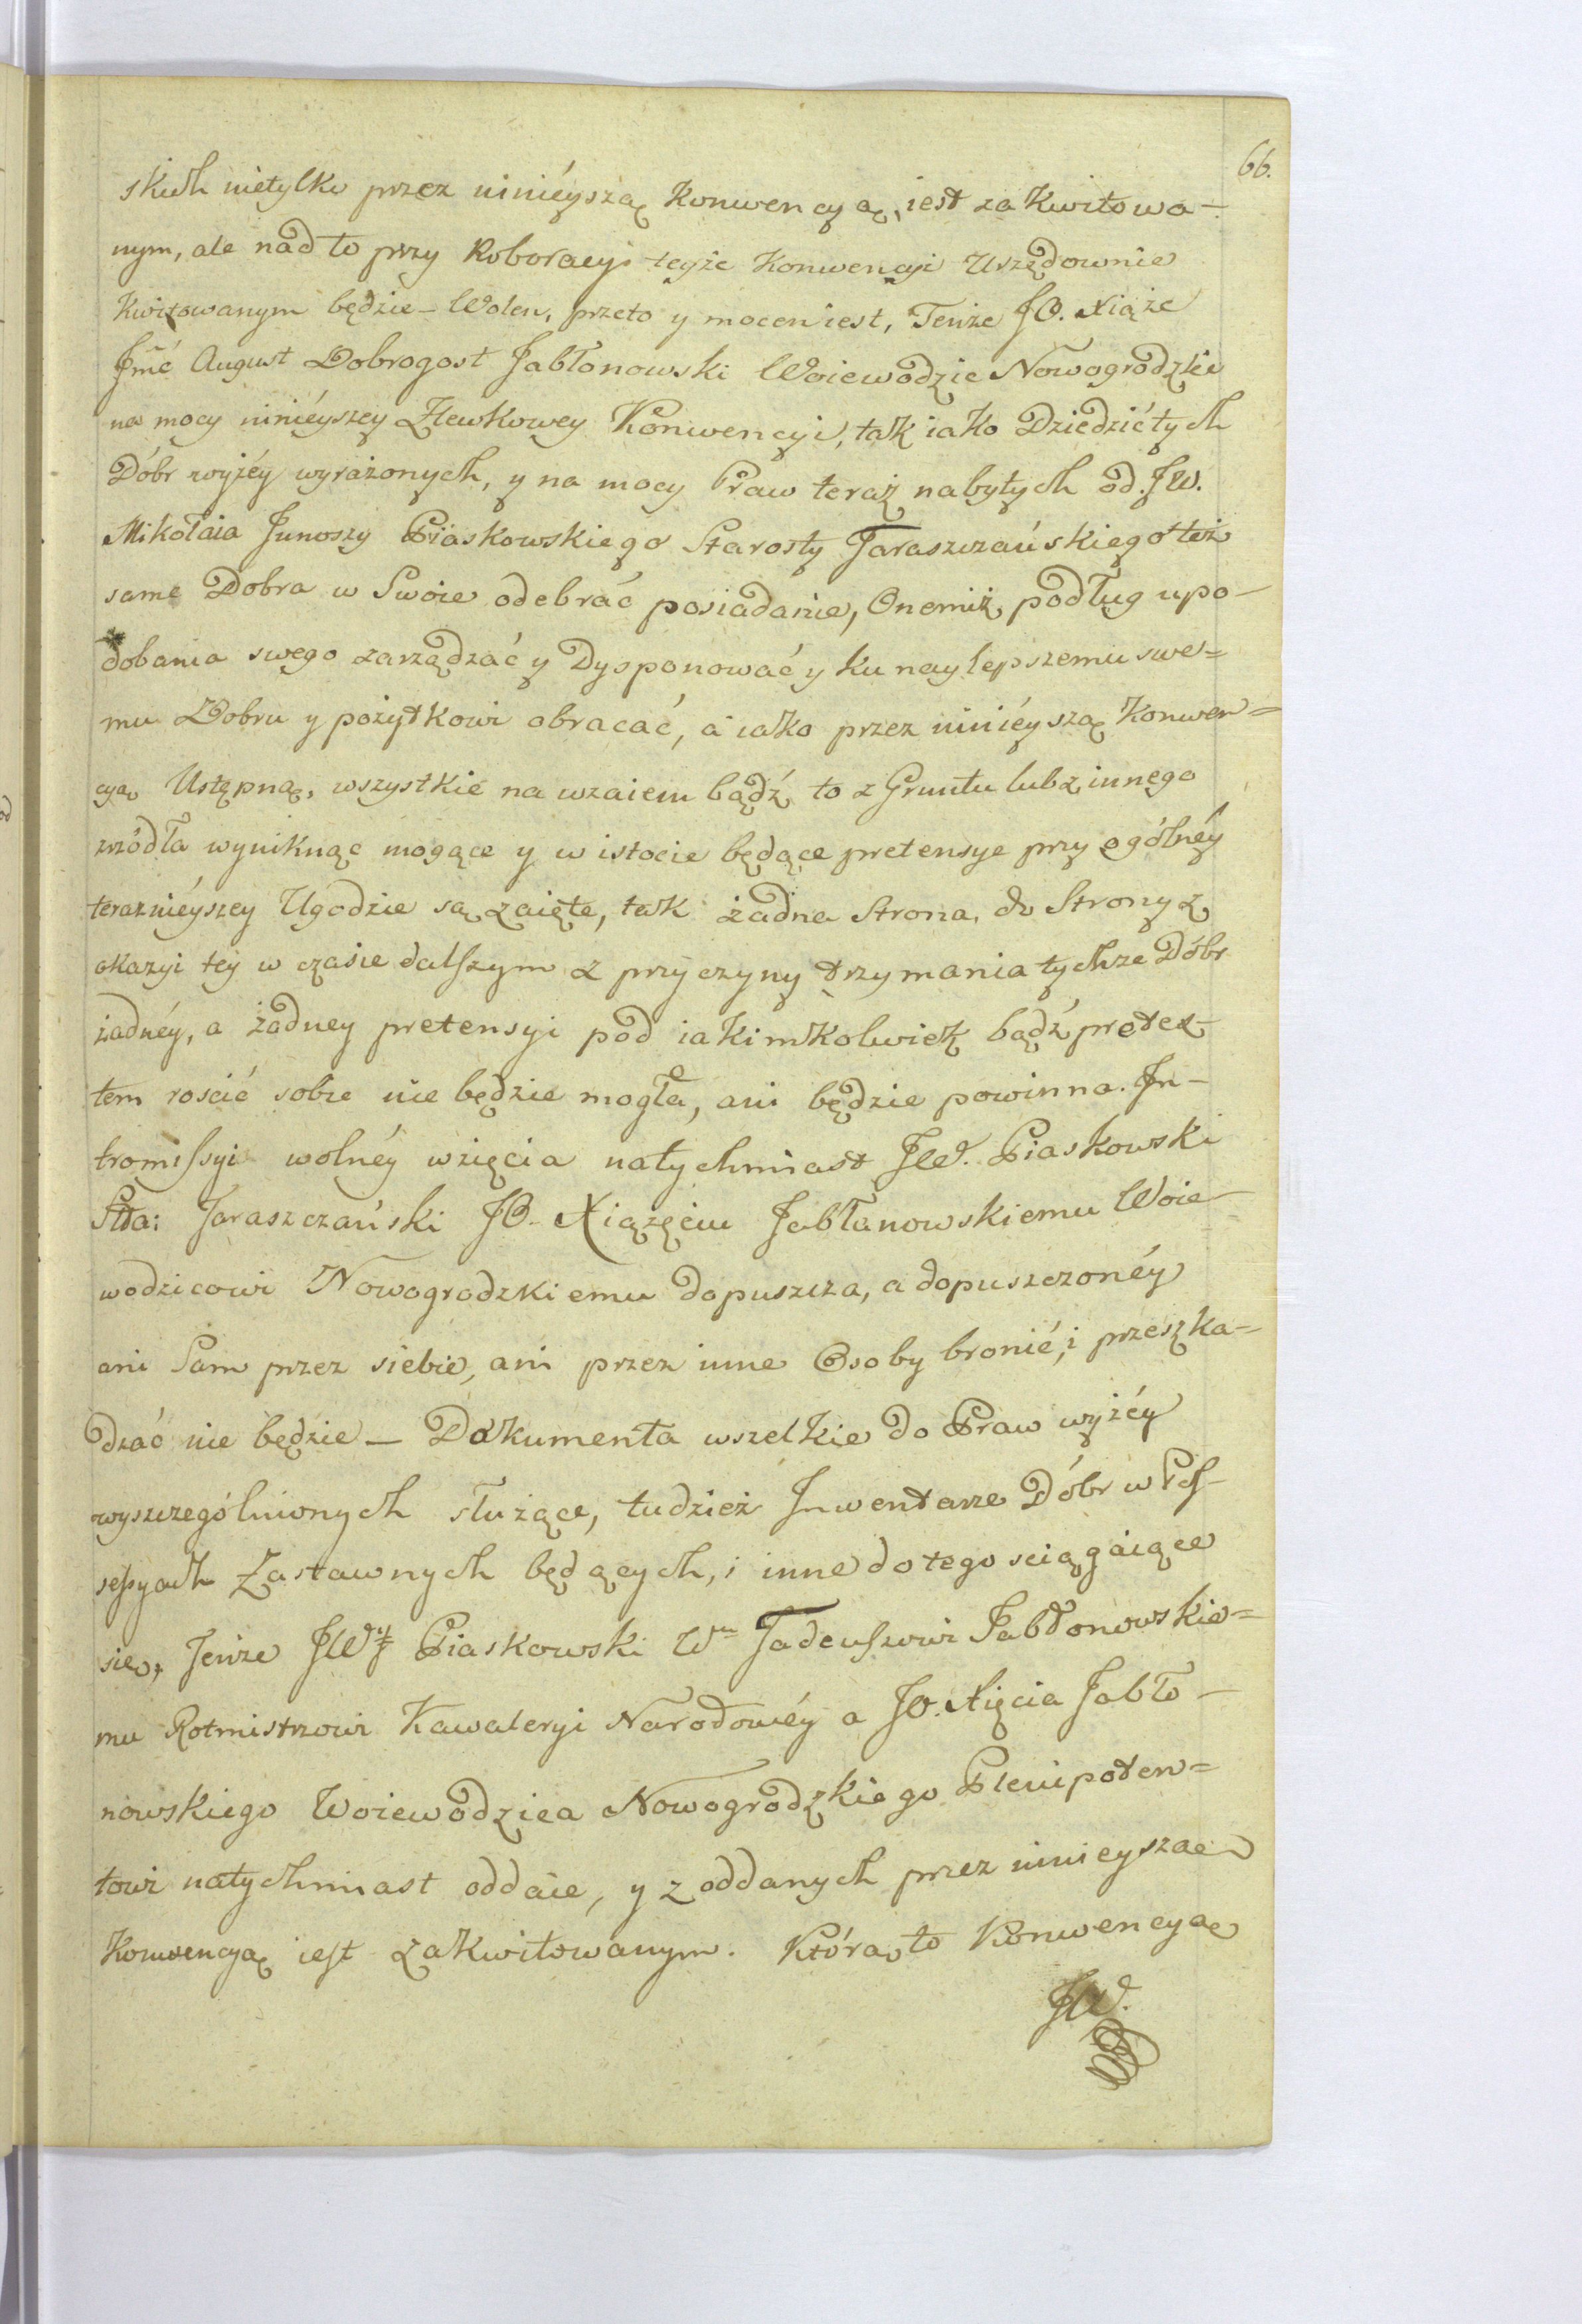 66.
skich nietylko przez ninieyszą Konwencyą, iest zakwitowa-
nym, ale nad to przy Roboracyi teyże Konwencyi Urzędownie
Kwitowanym będzie – Wolen, przeto y mocen iest, Tenże JO. Xiąże
Jmć August Dobrogost Jabłonowski Woiewodzic Nowogrodzki
na mocy ninieyszey Zlewkowey Konwencyi, tak iako Dziedzic tych
Dóbr wyżéy wyrażonych, y na mocy Praw teraz nabytych od JW.
Mikołaia Junoszy Piaskowskiego Starosty Taraszczańskiego też
same Dobra w Swoie odebrać posiadanie, Onemiż podług upo-
dobania swego zarządzać y Dysponować y ku naylepszemu swe=
mu Dobru y pożytkowi obracać, a iako przez ninieyszą Konwen=
cyą Ustępną, wszystkie na wzaiem bądź to z Gruntu lub z innego
zrzódła wyniknąć mogące y w istocie będące pretensye przy ogólnéy
teraznieyszey Ugodzie są zaięte, tak żadna Strona, do Strony z
okazyi tey w czasie dalszym z przyczyny trzymania tychże Dóbr
żadnéy, a żadney pretensyi pod iakimkolwiek bądź pretex-
tem roscić sobie nie będzie mogła, ani będzie powinna. In-
tromissyi wolnéy wzięcia natychmiast JW. Piaskowski
Stta: Taraszczański JO. Xiążęciu Jabłonowskiemu Woie-
wodzicowi Nowogrodzkiemu dopuszcza, a dopuszczonéy
ani Sam przez siebie, ani przez inne Osoby bronić, i przeszka-
dzać nie będzie – Dokumenta wszelkie do Praw wyżéy
wyszczególnionych służące, tudzież Inwentarze Dóbr w Pos-
sessyach Zastawnych będących, i inne do tego sciągaiące
się, Tenże JW Piaskowski Wmu Tadeuszowi Jabłonowskie=
mu Rotmistrzowi Kawaleryi Narodowéy a JO. Xięcia Jabło-
nowskiego Woiewodzica Nowogrodzkiego Plenipoten=
towi natychmiast oddaie, y z oddanych przez ninieyszą
Konwencyą iest zakwitowanym. Którą to Konwencyą
JW.